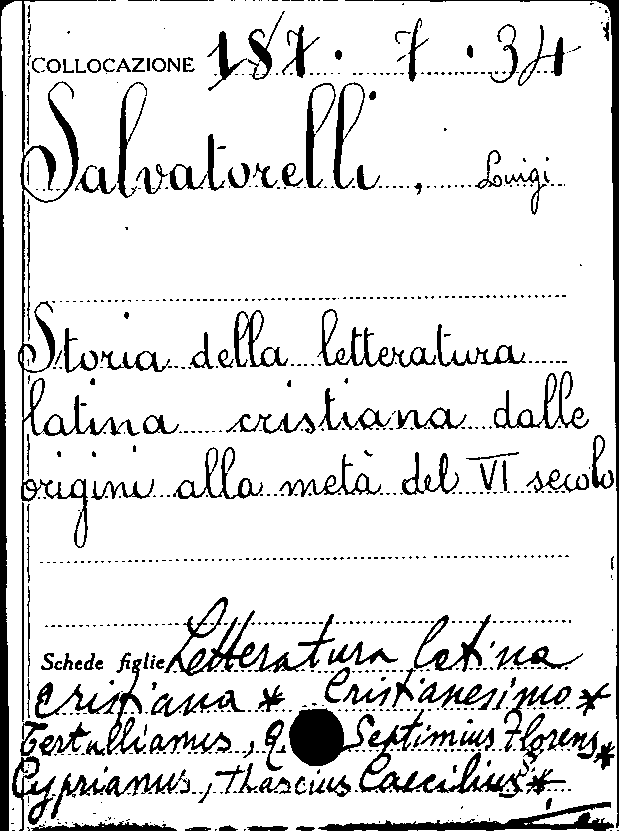 COLLOCAZIONE 187.7.34
Salvatorelli, Luigi
Storia della letteratura
latina cristiana dalle
origini alla metà del VI secolo
Schede figlie Letteratura latina
cristiana * Cristianesimo *
Tertullianus, Q. Septimius Florens *
Cyprianus, Thascius Caecilius *